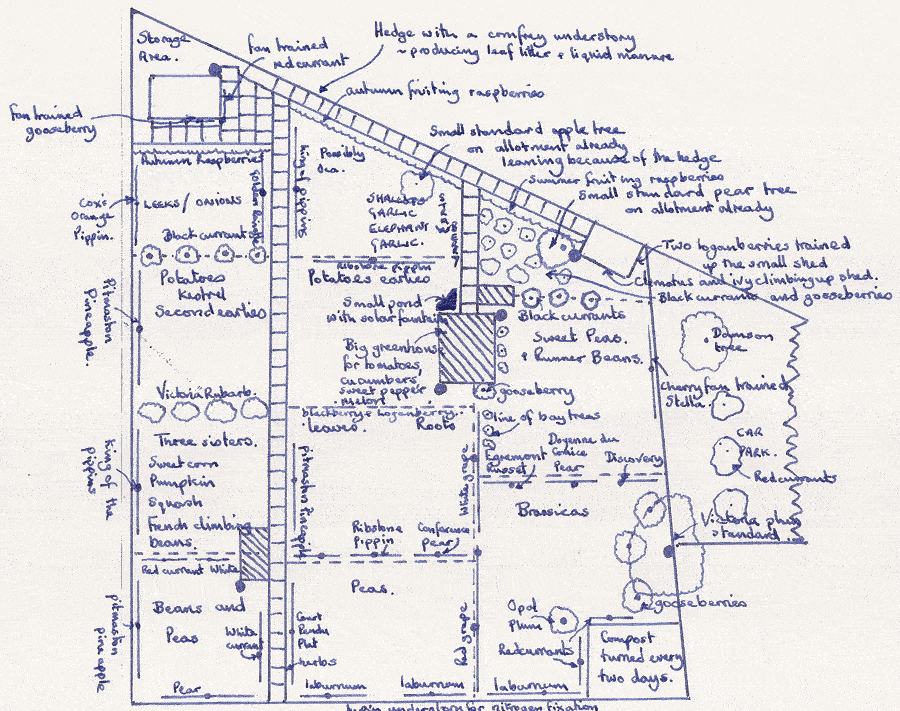 Storage
Area.
fan trained
redcurrant
Hedge with a comfrey understory
~ producing leaf litter + liquid manure
autumn fruiting raspberries
fan trained
gooseberry
Small standard apple tree
on allotment already
leaning because of the hedge
Summer fruiting raspberries
Small standard pear tree
on allotment already
Autumn Raspberries
King of pippins
Possibly
Cox's
Orange
Pippin.
LEEKS/ONIONS
Blackcurrants
SHALLOTS
GARLIC
ELEPHANT
GARLIC.
Two loganberries trained
up the small shed
Clematus and ivy climbing up shed.
Blackcurrants and gooseberries
Ribstone pippin
Potatoes earlies
Potatoes
Kestrel
Second earlies
Pitmaston
Pineapple.
Small pond
with solar fountain
Blackcurrants
Sweet Peas.
+ Runner Beans.
Big greenhouse
for tomatoes,
cucumbers
sweet pepper
melon
Damson
tree
Cherry fan trained
Stella.
gooseberry
Victoria Rubarb.
blackberry + loganberry
leaves.
Roots
line of bay trees
Three sisters.
Sweetcorn
Pumpkin
Squash
French climbing
beans.
King of the
pippins
pitmaston Pineapple
White grape
Egremont
Russet
Doyenne du
Comice
Pear
Discovery
CAR
PARK.
Redcurrants
Brassicas
Victoria plum
standard
Ribstone
Pippin
Conference
pear
Red currant White
Peas.
Beans and
Peas
White
currant
Court
Pendu
Plat
herbs
Red grape
pitmaston
pineapple
Opal
Plum
gooseberries
Redcurrants
Compost
turned every
two days.
Pear
laburnum
laburnum
laburnum
understory for nitrogen fixation